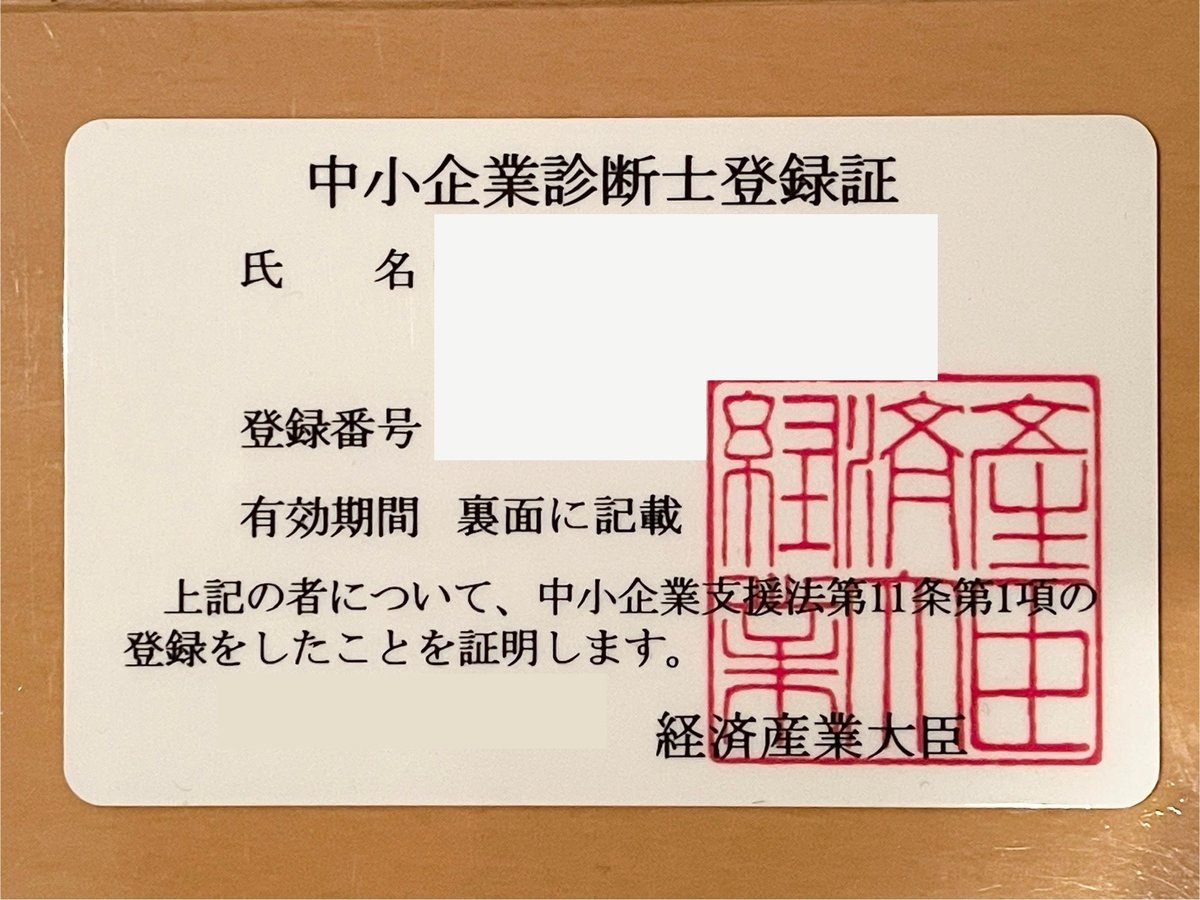 中小企業診断士登録証
氏　名
登録番号
有効期間　裏面に記載
上記の者について、中小企業支援法第11条第1項の
登録をしたことを証明します。
経済産業大臣
経済産業大臣